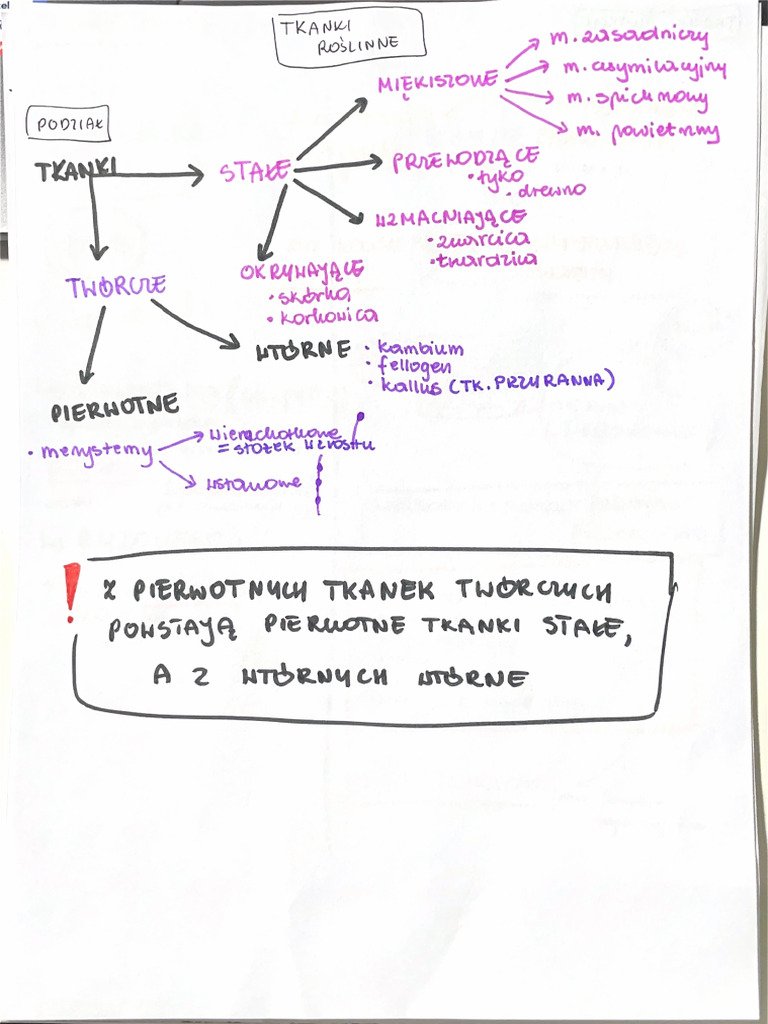 TKANKI
ROŚLINNE
PODZIAŁ
TKANKI
STAŁE
MIĘKISZOWE
m. zasadniczy
m. asymilacyjny
m. spichrzowy
m. powietrzny
PRZEWODZĄCE
• łyko
• drewno
WZMACNIAJĄCE
• zwarcica
• twardzica
OKRYWAJĄCE
• skórka
• korkowica
TWÓRCZE
WTÓRNE
• kambium
• fellogen
• kallus (TK. PRZYRANNA)
PIERWOTNE
• merystemy
wierzchołkowe
= stożek wzrostu
wstawowe
! Z PIERWOTNYCH TKANEK TWÓRCZYCH
POWSTAJĄ PIERWOTNE TKANKI STAŁE,
A Z WTÓRNYCH WTÓRNE